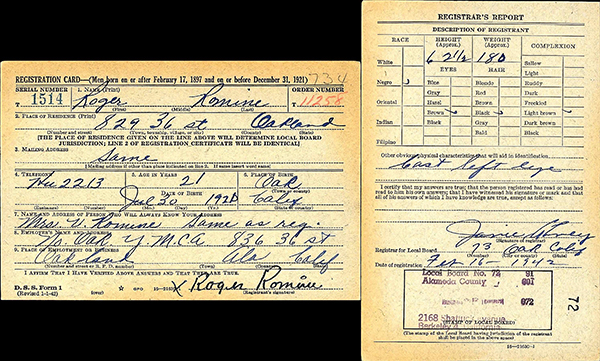 REGISTRATION CARD—(Men born on or after February 17, 1897 and on or before December 31, 1921) 734
SERIAL NUMBER 1. NAME (Print) ORDER NUMBER
T 1514 Roger Romine T 11258
(First) (Middle) (Last)
2. PLACE OF RESIDENCE (Print)
829 36 st Oakland
(Number and street) (Town, township, village, or city) (County) (State)
[THE PLACE OF RESIDENCE GIVEN ON THE LINE ABOVE WILL DETERMINE LOCAL BOARD
JURISDICTION; LINE 2 OF REGISTRATION CERTIFICATE WILL BE IDENTICAL]
3. MAILING ADDRESS
Same
(Mailing address if other than place indicated on line 2. If same insert word same)
4. TELEPHONE 5. AGE IN YEARS 6. PLACE OF BIRTH
Hu 2213 21 Oak
DATE OF BIRTH (Town or county)
Jul 30 1920 Calif
(Mo.) (Day) (Yr.) (State or country)
7. NAME AND ADDRESS OF PERSON WHO WILL ALWAYS KNOW YOUR ADDRESS
Mrs Romine Same as reg.
8. EMPLOYER'S NAME AND ADDRESS
No. Oak. Y.M.C.A 836 36 st
9. PLACE OF EMPLOYMENT OR BUSINESS
Oakland Ala Calif
(Number and street or R. F. D. number) (Town) (County) (State)
I AFFIRM THAT I HAVE VERIFIED ABOVE ANSWERS AND THAT THEY ARE TRUE.
D. S. S. Form 1
(Revised 1-1-42) x Roger Romine
(Registrant's signature)
REGISTRAR'S REPORT
DESCRIPTION OF REGISTRANT
RACE HEIGHT (Approx.) WEIGHT (Approx.) COMPLEXION
White 6 2½ 180 Sallow
EYES HAIR Light
Negro Blue Blonde Ruddy
Gray Red Dark
Oriental Hazel Brown Freckled
Brown Black Light brown
Indian Black Gray Dark brown
Bald Black
Filipino
Other obvious physical characteristics that will aid in identification
Cast left eye
I certify that my answers are true; that the person registered has read or has had
read to him his own answers; that I have witnessed his signature or mark and that
all of his answers of which I have knowledge are true, except as follows:
(Signature of registrar)
Registrar for Local Board 73 Oak Calif
(Number) (City or county) (State)
Date of registration Feb 16 - 1942
Local Board No. 73 91
Alameda County 001
072
2168 Shattuck avenue
Berkeley California
72
(STAMP OF LOCAL BOARD)
(The stamp of the Local Board having jurisdiction of the registrant
shall be placed in the above space)